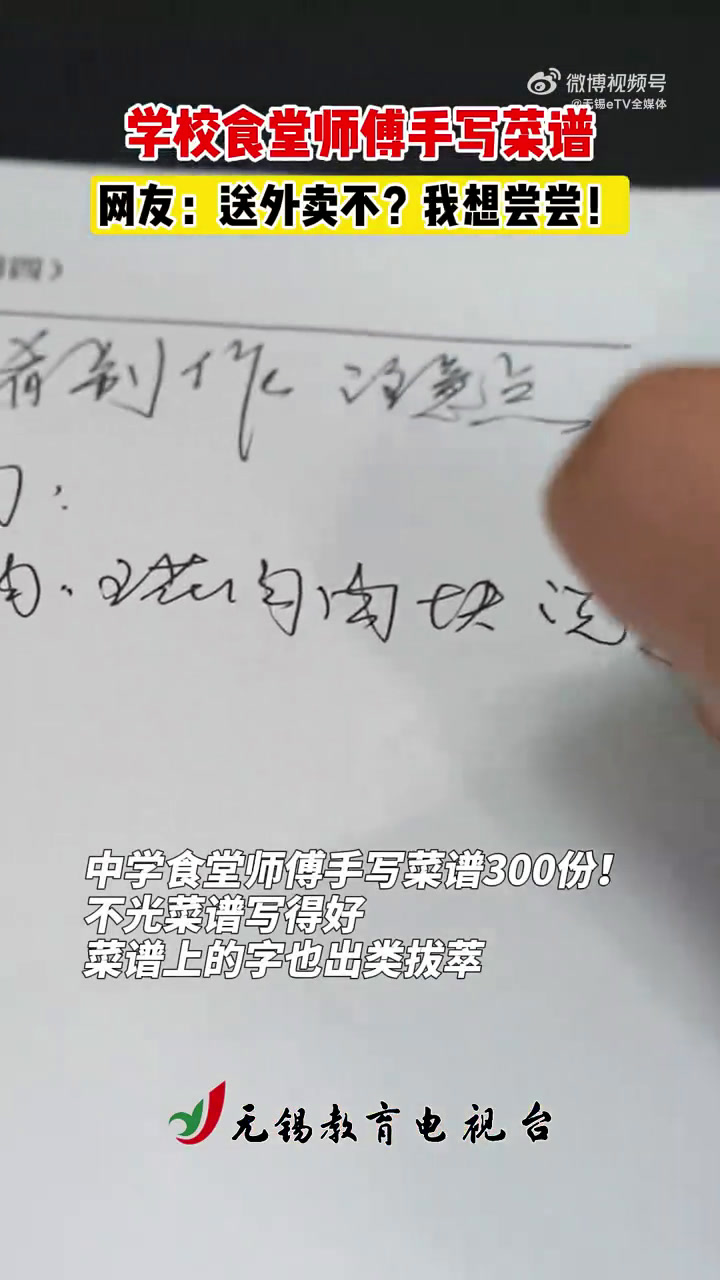 微博视频号
@无锡eTV全媒体
学校食堂师傅手写菜谱
网友：送外卖不？我想尝尝！
四）
制作 注意点
肉块
中学食堂师傅手写菜谱300份！
不光菜谱写得好
菜谱上的字也出类拔萃
无锡教育电视台